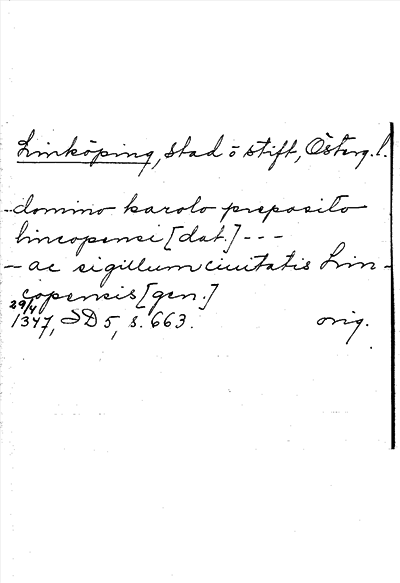 Linköping, stad o stift, Österg. l.
- domino karolo preposito
lincopensi [dat.] - - -
- ac sigillum ciuitatis Lin-
copensis [gen.]
29/4
1347, SD 5, s. 663. orig.